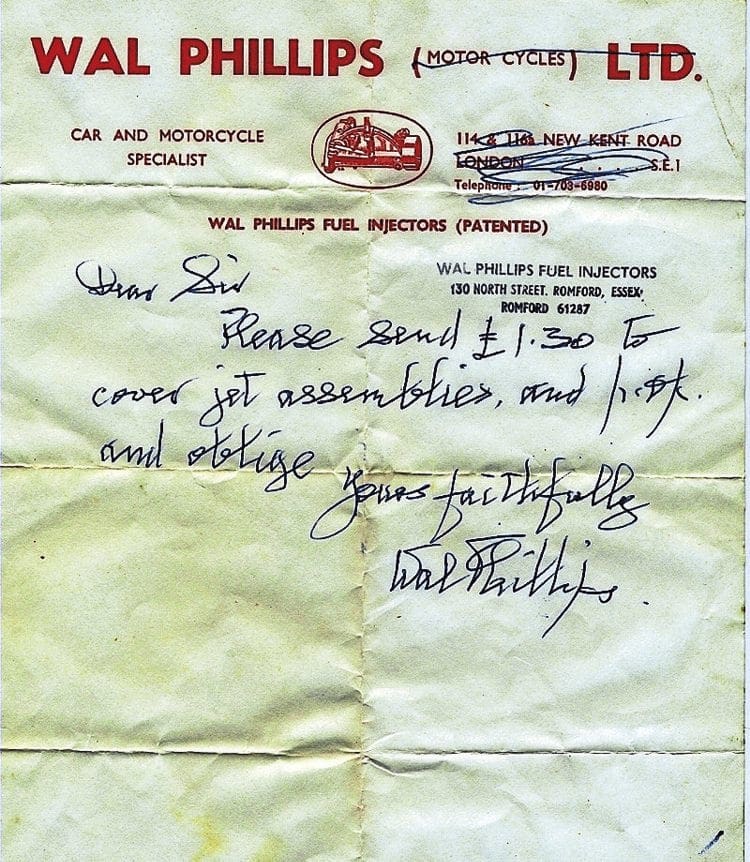 WAL PHILLIPS (MOTOR CYCLES) LTD.
CAR AND MOTORCYCLE
SPECIALIST
114 & 116a NEW KENT ROAD
LONDON . . . . . S.E.1
Telephone : 01-703-6980
WAL PHILLIPS FUEL INJECTORS (PATENTED)
WAL PHILLIPS FUEL INJECTORS
130 NORTH STREET. ROMFORD, ESSEX,
ROMFORD 61287
Dear Sir
Please send £1.30 to
cover jet assemblies, and p.&p.
and oblige
yours faithfully
Wal Phillips.